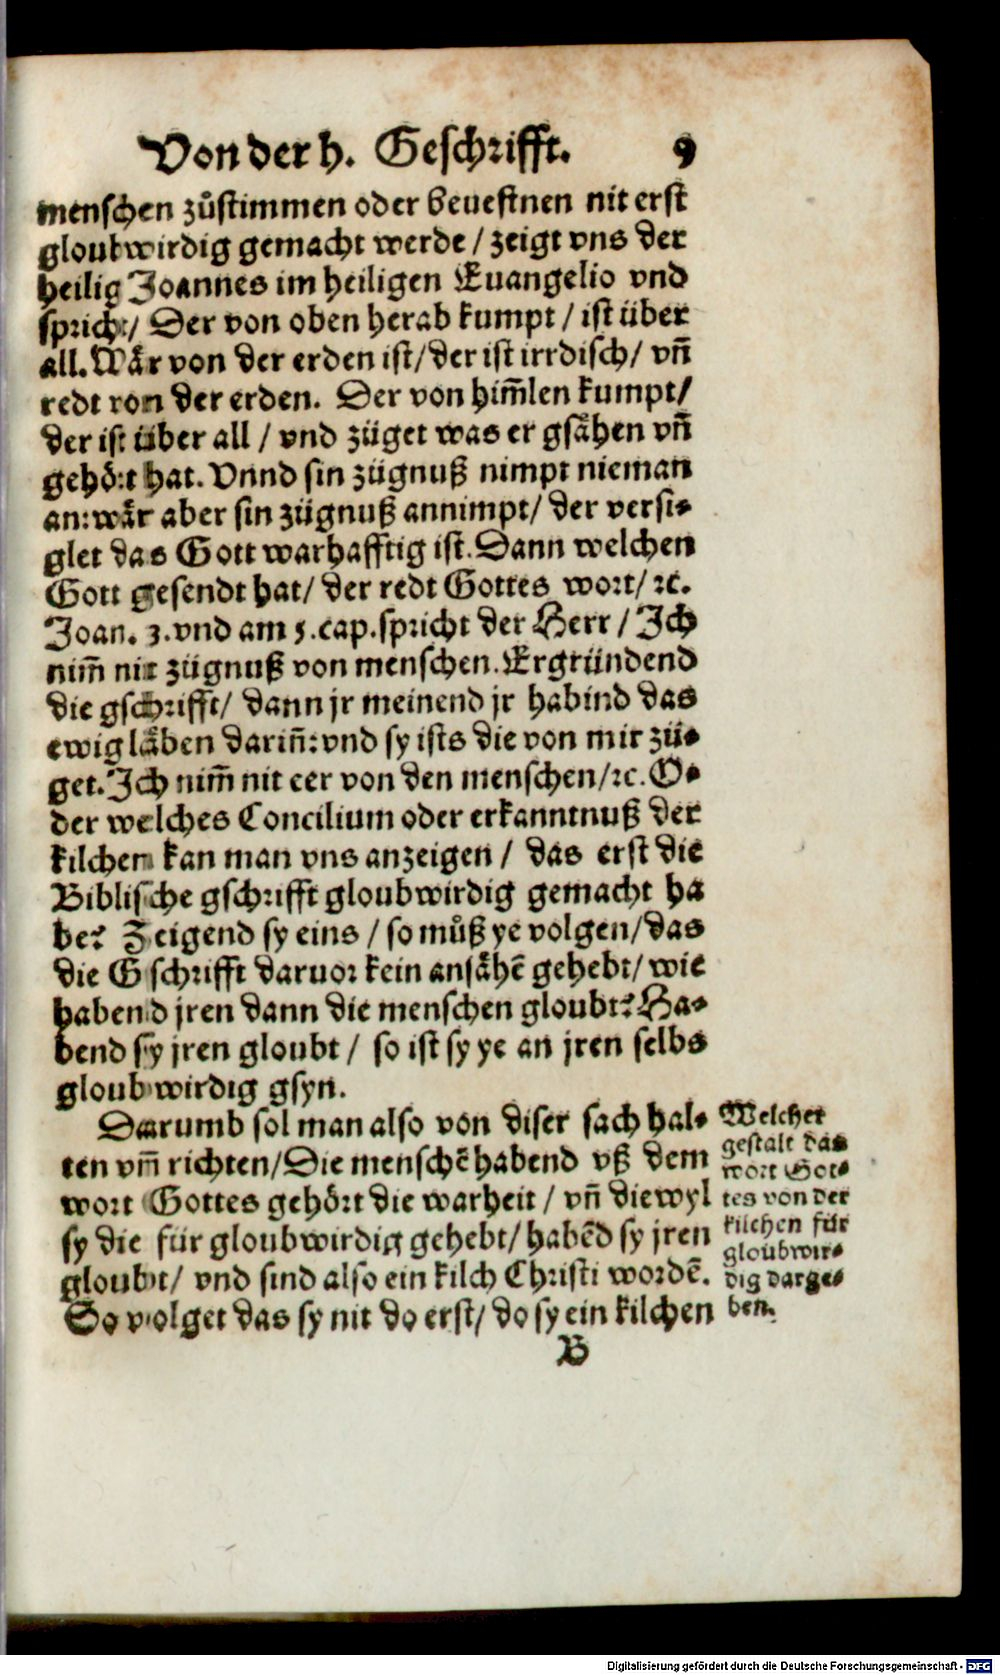 Von der h. Geschrifft. 9
menschen zůstimmen oder beuestnen nit erst
gloubwirdig gemacht werde / zeigt vns der
heilig Joannes im heiligen Euangelio vnd
spricht / Der von oben herab kumpt / ist über
all. Wår von der erden ist / der ist irrdisch / vñ
redt von der erden. Der von him̃len kumpt /
der ist über all / vnd züget was er gsåhen vñ
gehört hat. Vnnd sin zügnuß nimpt nieman
an: wår aber sin zügnuß annimpt / der versi⸗
glet das Gott warhafftig ist. Dann welchen
Gott gesendt hat / der redt Gottes wort / ꝛc.
Joan. 3. vnd am 5. cap. spricht der Herr / Ich
nim̃ nit zügnuß von menschen. Ergründend
die gschrifft / dann jr meinend jr habind das
ewig låben dariñ: vnd sy ists die von mir zü⸗
get. Ich nim̃ nit eer von den menschen / ꝛc. O⸗
der welches Concilium oder erkanntnuß der
kilchen kan man vns anzeigen / das erst die
Biblische gschrifft gloubwirdig gemacht ha
be? Zeigend sy eins / so můß ye volgen / das
die Gschrifft daruor kein ansåhē gehebt / wie
habend jren dann die menschen gloubt? Ha⸗
bend sy jren gloubt / so ist sy ye an jren selbs
gloubwirdig gsyn.
Darumb sol man also von diser sach hal⸗
ten vm̃ richten / Die menschē habend vß dem
wort Gottes gehört die warheit / vñ diewyl
sy die für gloubwirdig gehebt / habēd sy jren
gloubt / vnd sind also ein kilch Christi wordē.
So volget das sy nit do erst / do sy ein kilchen
B
Welcher
gestalt das
wort Got⸗
tes von der
kilchen für
gloubwir⸗
dig darge⸗
ben.
Digitalisierung gefördert durch die Deutsche Forschungsgemeinschaft - DFG